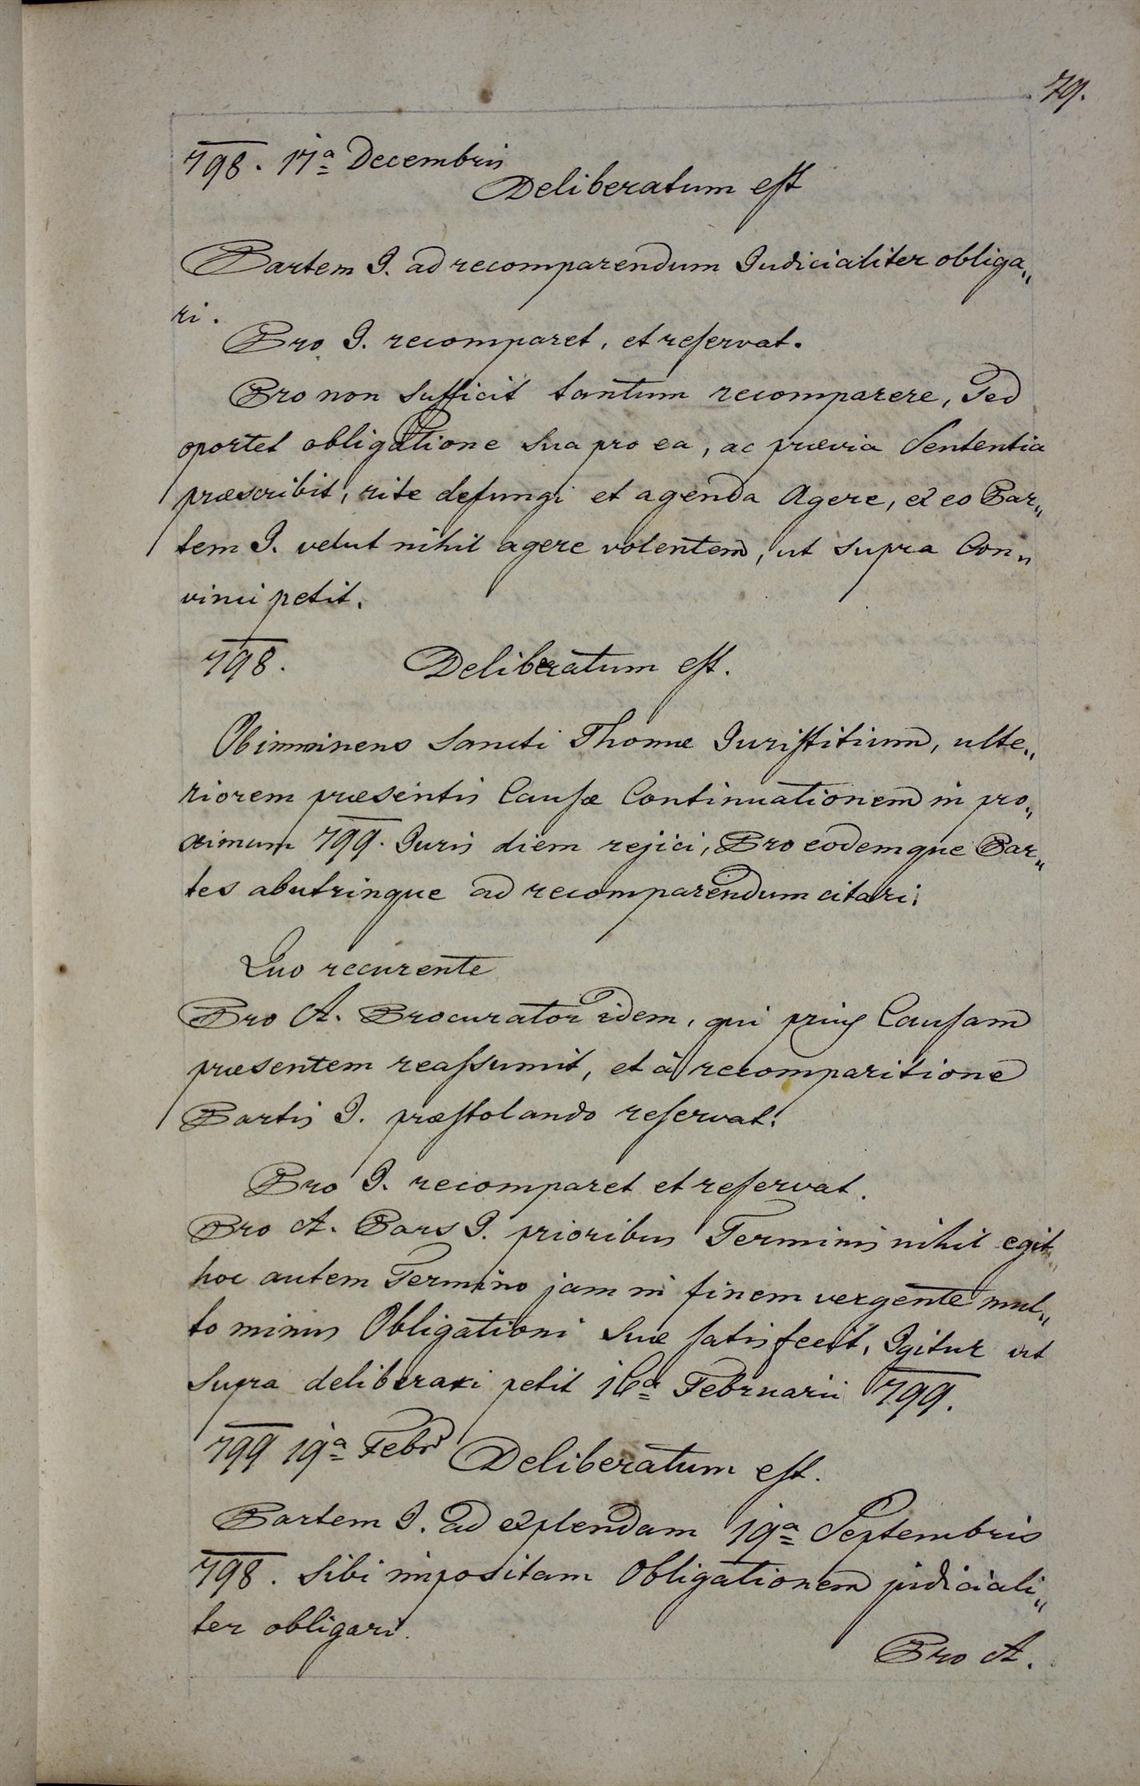 79.
798. 17a Decembris
Deliberatum est
Partem I. ad recomparendum Iudicialiter obliga„
ri.
Pro I. recomparet, et reservat.
Pro non sufficit tantum recomparere, Sed
oportet obligatione sua pro ea, ac prævia Sententia
præscribit, rite defungi et agenda Agere, ex eo Par„
tem I. velut nihil agere volentem, ut supra Con„
vinci petit.
798. Deliberatum est.
Ob iminens Sancti Thomæ Juristitium, ulte„
riorem præsentis Causæ Continuationem in pro„
ximum 799. Juris diem rejici, Pro eodemque Par„
tes abutrinque ad recomparendum citari.
Quo recurente
Pro A. Procurator idem, qui prius Causam
præsentem reassumit, et à recomparitione
Partis I. præstolando reservat.
Pro I. recomparet et reservat.
Pro A. Pars I. prioribus Terminis nihil egit
hoc autem Termino jam in finem vergente mul„
to minus Obligationi Suæ satisfecit, Igitur ut
Supra deliberari petit 16a Februarii 799.
799 19a Febr Deliberatum est.
Partem I. ad explendam 19a Septembris
798. Sibi impositam Obligationem judiciali„
ter obligari.
Pro A.